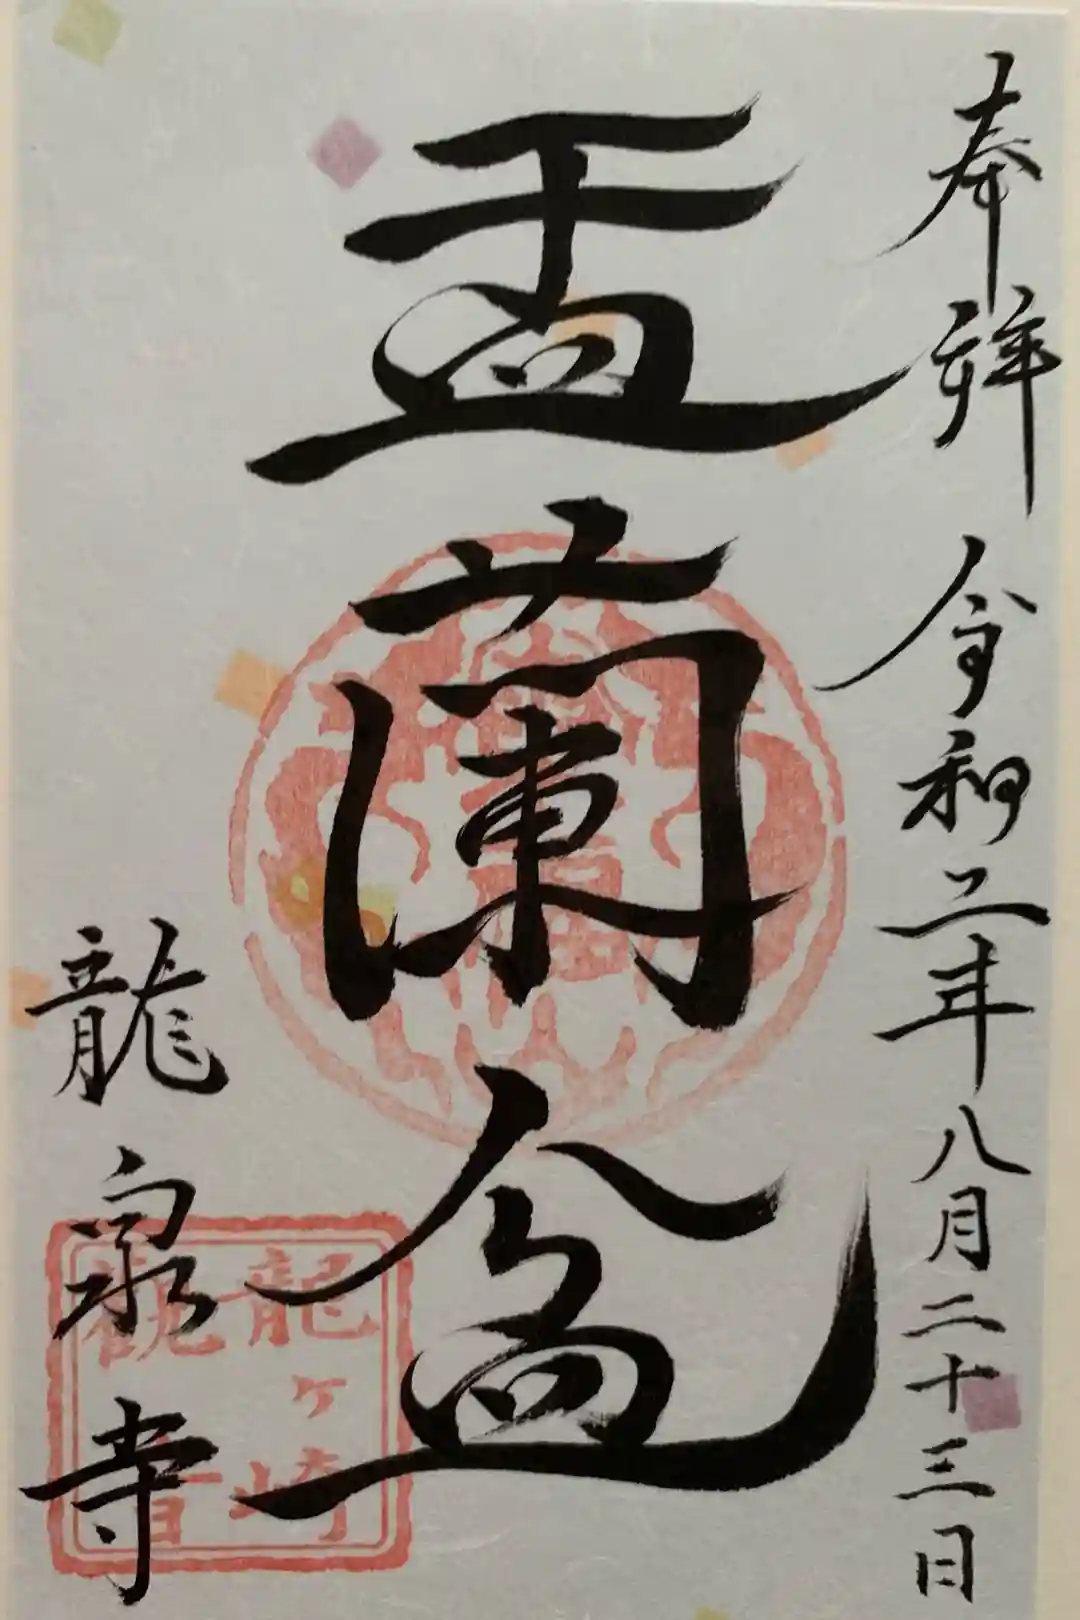 奉拝 令和二年八月二十三日
盂蘭盆
龍泉寺
龍ヶ崎
観音